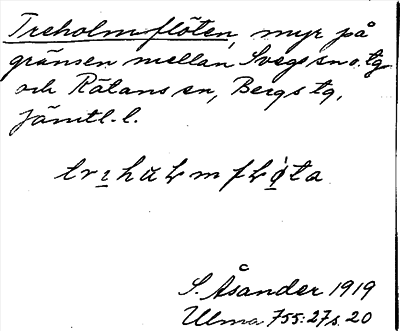 Treholmflöten, myr på
gränsen mellan Svegs sn o. tg
och Rätans sn, Bergs tg,
Jämtl. l.
trihuLmfLøta
S. Åsander 1919
Ulma 755:27 s. 20